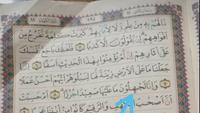 مَّا لَهُم بِهِۦ مِنْ عِلْمٍ وَلَا لِءَابَآئِهِمْ كَبُرَتْ كَلِمَةً تَخْرُجُ مِنْ
أَفْوَٰهِهِمْ إِن يَقُولُونَ إِلَّا كَذِبًا ٥ فَلَعَلَّكَ بَٰخِعٌ نَّفْسَكَ
عَلَىٰٓ ءَاثَٰرِهِمْ إِن لَّمْ يُؤْمِنُوا۟ بِهَٰذَا ٱلْحَدِيثِ أَسَفًا ٦ إِنَّا
جَعَلْنَا مَا عَلَى ٱلْأَرْضِ زِينَةً لَّهَا لِنَبْلُوَهُمْ أَيُّهُمْ أَحْسَنُ عَمَلًا
٧ وَإِنَّا لَجَٰعِلُونَ مَا عَلَيْهَا صَعِيدًا جُرُزًا ٨ أَمْ حَسِبْتَ
أَنَّ أَصْحَٰبَ وَٱلرَّقِيمِ كَانُوا۟ مِنْ